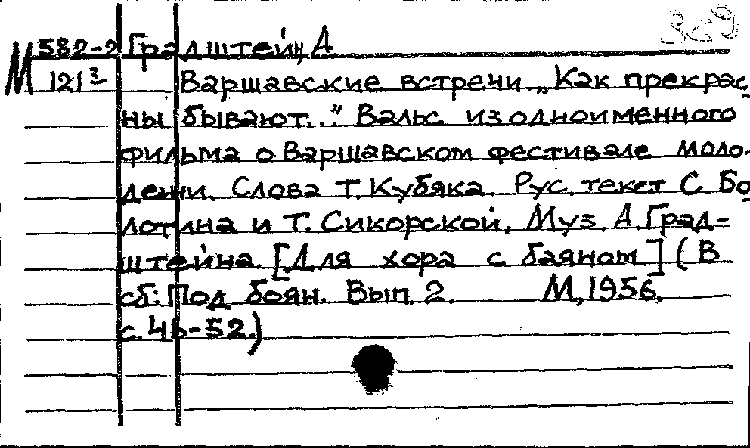 М 582-2 Градштейн, А
121 3 Варшавские встречи „Как прекрас
ны бывают.." Вальс из одноименного
фильма о Варшавском фестивале моло-
дежи. Слова Т. Кубяка. Рус. текст С. Бо
лотина и Т. Сикорской. Муз. А. Град-
штейна. [Для хора с баяном] (В
сб: Под боян. Вып. 2. М, 1956.
с. 46-52.)